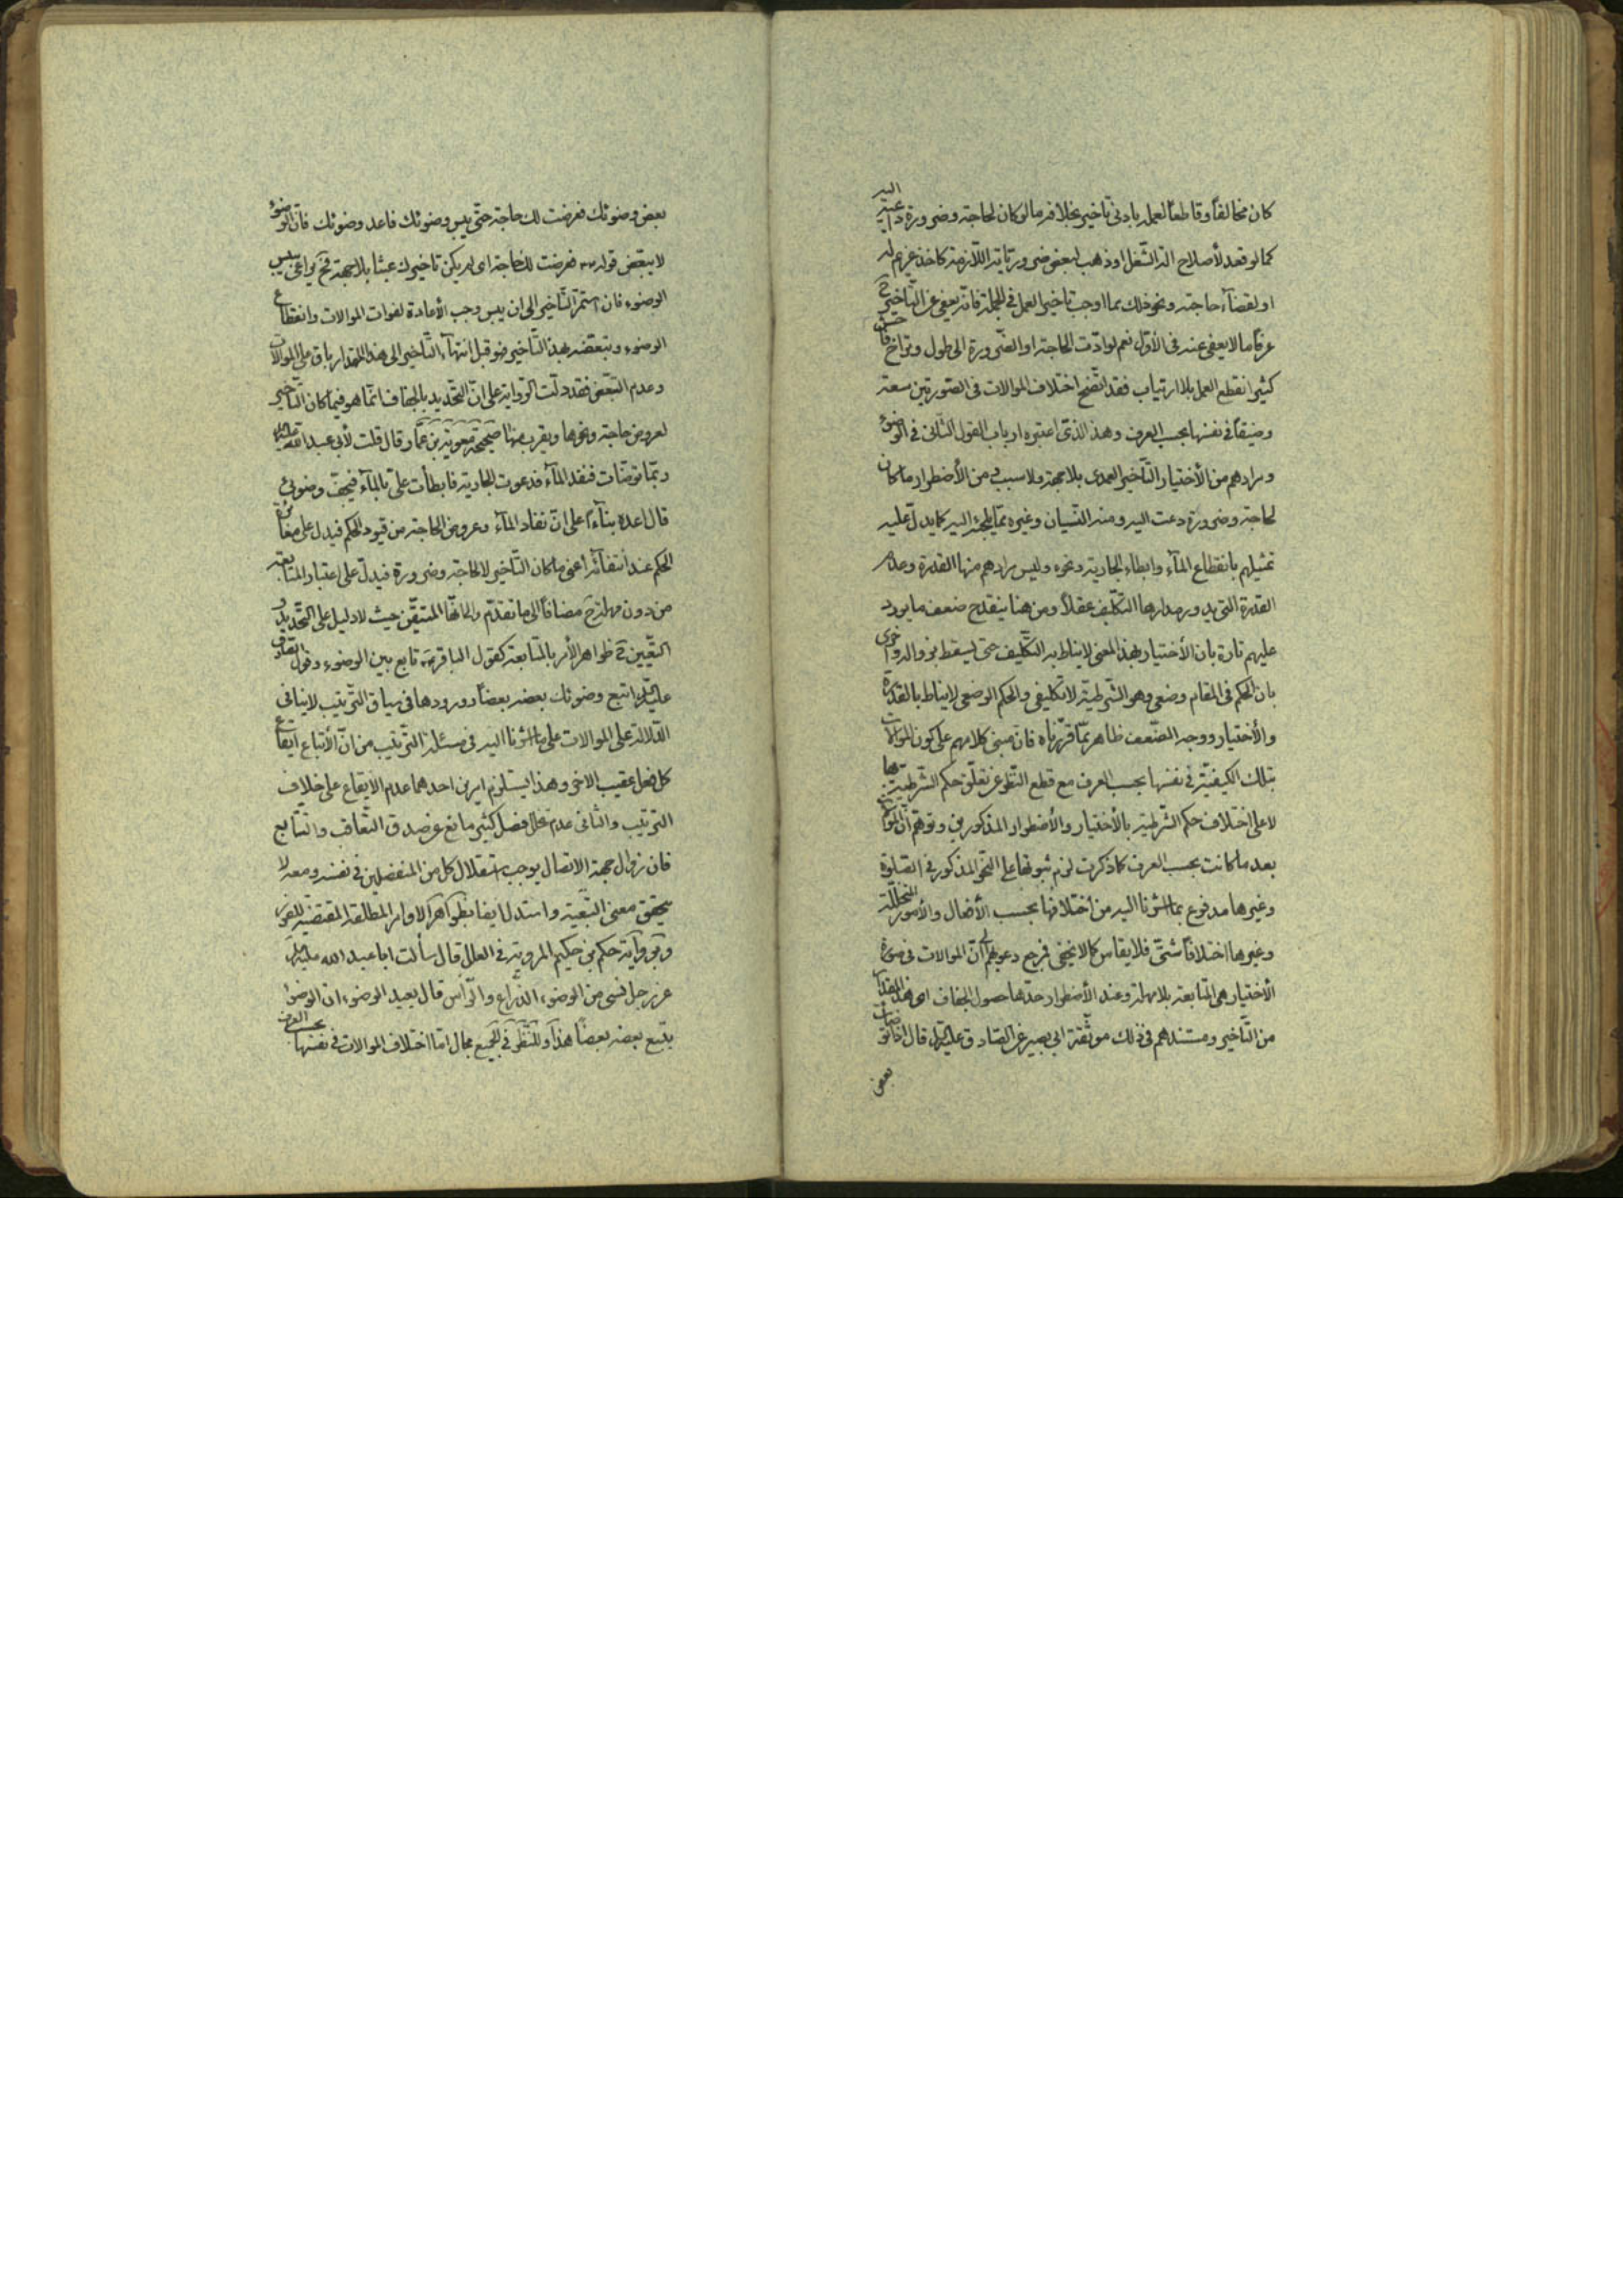 كان مخالفاً وقاطعاً لعمله بادنى تأخير بخلافه ما لو كان لحاجة وضرورة داعية اليه
كما لو قعد لأصلاح الة الشغل او ذهب لبعض ضروريّاته اللازمة كاخذ غريم له
او لقضآء حاجته ونحو ذلك بما اوجب تاخير العمل فى الجملة فانّه يعفى عن التّاخير ح
عرفاً ما لا يعفى عنه فى الأوّل نعم لو ادّت الحاجة او الضّرورة الى طول وتراخ فاحش
كثيراً انقطع العمل بلا ارتياب فقد اتّضح اختلاف الموالات فى الصّورتين سعة
وضيقاً فى نفسها بحسب العرف وهذا الذى اعتبره ارباب القول الثّانى فى الوضوء
ومرادهم من الأختيار التّأخير العمدى بلا جهة ولا سبب ومن الأضطرار ما كان
لحاجة وضرورة دعت اليه ومنه النّسيان وغيره ممّا يلجئ اليه كما يدلّ عليه
تمثيلهم بانقطاع المآء وابطاء الجارية ونحوه وليس مرادهم منها القدرة وعدم
القدرة التى يدور مدارها التكليف عقلاً ومن هنا ينقدح ضعف ما يورد
عليهم تارة بان الأختيار بهذا المعنى لا يناط به التّكليف حتى يسقط بزواله واخرى
بان الحكم فى المقام وضعى وهو الشّرطيّة لا تكليفى والحكم الوضعى لا يناط بالقدرة
والأختيار ووجه الضّعف ظاهر ممّا قرّرناه فان مبنى كلامهم على كون الموالات
بتلك الكيفيّة فى نفسها بحسب العرف مع قطع النّظر عن تعلّق حكم الشّرطيّة بها
لا على اختلاف حكم الشّرطيّة بالأختيار والأضطرار المذكورين وتوهّم انّ الموالات
بعد ما كانت بحسب العرف كما ذكرت لزم ثبوتها على النّحو المذكور فى الصّلوة
وغيرها مدفوع بما اشرنا اليه من اختلافها بحسب الأفعال والأمور المتخلّلة
وغيرها اختلافاً شتّى فلا يقاس كما لا يخفى فمرجع دعويهم الى انّ الموالات فى صورة
الأختيار هى المتابعة بلا مهلة وعند الأضطرار حدّها حصول الجفاف اى هذا المقدار
من التّأخير ومستندهم فى ذلك موثّقة ابى بصير عن الصّادق عليه السّلام قال اذا توضأت
بعض
بعض وضوئك فعرضت لك حاجة حتّى يبس وضوئك فاعد وضوئك فانّ الوضوء
لا يبعّض قوله ع فعرضت لك حاجة اى لم يكن تاخيرك عبثا بلا جهة فح يراعى يبس
الوضوء فان استمرّ التّاخير الى ان يبس وجب الأعادة لفوات الموالات وانقطاع
الوضوء وتبعّضه بهذا التّاخير فهو قبل انتهآء التّأخير الى هذا المقدار باق على الموالات
وعدم التبعّض فقد دلّت الرّواية على انّ التّحديد بالجفاف انّما هو فيما كان التّأخير
لعروض حاجة ونحوها ويقرب منها صحيحة معوية بن عمّار قال قلت لأبى عبد الله عليه السلام
ربّما توضّأت فنفد المآء فدعوت الجارية فابطأت علىّ بالمآء فيجفّ وضوئى
قال اعده بناءً على انّ نفاد المآء وعروض الحاجة من قيود الحكم فيدل على مغايرة
الحكم عند انتفآئه أعنى ما كان التّأخير لا لحاجة وضرورة فيدلّ على اعتبار المتابعة
من دون مهلة ح مضافاً الى ما تقدّم والى انّها المتيقّن حيث لا دليل على التّحديد و
التّعيين ح ظواهر الأمر بالمتابعة كقول الباقر ع تابع بين الوضوء وقول الصّادق
عليه السّلام اتبع وضوئك بعضه بعضاً وورودها فى سياق التّرتيب لا ينافى
الدّلالة على الموالات على ما اشرنا اليه فى مسئلة التّرتيب من انّ الأتباع ايقاع
كل فعل عقيب الاخر وهذا يستلزم امرين احدهما عدم الأيقاع على خلاف
التّرتيب والثّانى عدم تخلّل فصل كثير مانع عن صدق التّعاقب والتتابع
فان زوال جهة الاتصال يوجب استقلال كل من المنفصلين فى نفسه ومعه لا
يتحقق معنى التّبعيّة واستدل ايضا بظواهر الاوامر المطلقة المقتضية للفور
وبرواية حكم بن حكيم المروية فى العلل قال سألت ابا عبد الله عليه السلام
عن رجل نسى من الوضوء الذّراع والرّأس قال يعيد الوضوء ان الوضوء
يتبع بعضه بعضاً هذا وللنّظر فى الجميع مجال امّا اختلاف الموالات فى نفسها بحسب العرف